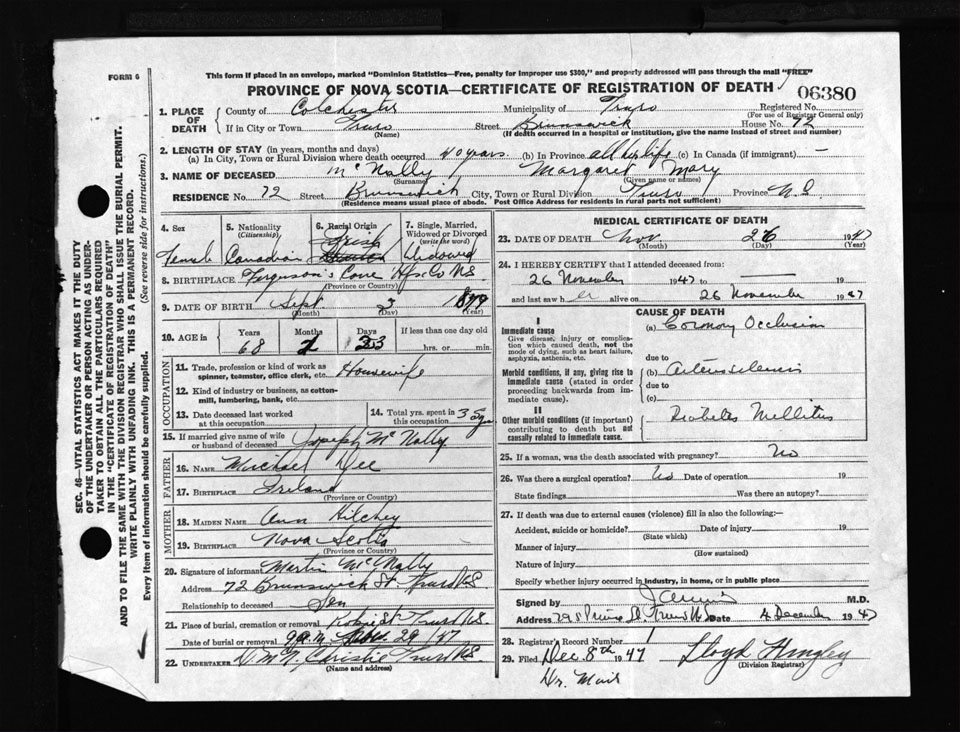 This form if placed in an envelope, marked "Dominion Statistics—Free, penalty for improper use $300," and properly addressed will pass through the mail "FREE"
FORM 6
PROVINCE OF NOVA SCOTIA—CERTIFICATE OF REGISTRATION OF DEATH
06380
1. PLACE OF DEATH
County of Colchester Municipality of Truro Registered No.
(For use of Registrar General only)
If in City or Town Truro Street Brunswick House No. 72
(Name) (If death occurred in a hospital or institution, give the name instead of street and number)
2. LENGTH OF STAY (in years, months and days)
(a) In City, Town or Rural Division where death occurred 40 years (b) In Province all her life (c) In Canada (if immigrant) —
3. NAME OF DECEASED McNally Margaret Mary
(Surname) (Given name or names)
RESIDENCE No. 72 Street Brunswick City, Town or Rural Division Truro Province N.S.
(Residence means usual place of abode. Post Office Address for residents in rural parts not sufficient)
4. Sex
Female
5. Nationality
(Citizenship)
Canadian
6. Racial Origin
Irish
7. Single, Married, Widowed or Divorced
(write the word)
Widowed
8. BIRTHPLACE Ferguson's Cove Hfx Co NS
(Province or Country)
9. DATE OF BIRTH Sept 3 1879
(Month) (Day) (Year)
10. AGE in
Years Months Days If less than one day old
68 2 23 hrs. or min.
OCCUPATION
11. Trade, profession or kind of work as spinner, teamster, office clerk, etc. Housewife
12. Kind of industry or business, as cotton-mill, lumbering, bank, etc.
13. Date deceased last worked at this occupation
14. Total yrs. spent in this occupation 35 yrs
15. If married give name of wife or husband of deceased Joseph McNally
FATHER
16. NAME Michael Yee
17. BIRTHPLACE Ireland
(Province or Country)
MOTHER
18. MAIDEN NAME Ann Hilchey
19. BIRTHPLACE Nova Scotia
(Province or Country)
20. Signature of informant Martin McNally
Address 72 Brunswick St. Truro N.S.
Relationship to deceased Son
21. Place of burial, cremation or removal Robie St Truro N.S.
Date of burial or removal 29 /47
22. UNDERTAKER Christie Truro N.S.
(Name and address)
MEDICAL CERTIFICATE OF DEATH
23. DATE OF DEATH Nov 26 1947
(Month) (Day)
24. I HEREBY CERTIFY that I attended deceased from:
26 November 1947 to 19
and last saw her alive on 26 November 1947
CAUSE OF DEATH
I
Immediate cause
Give disease, injury or complication which caused death, not the mode of dying, such as heart failure, asphyxia, asthenia, etc.
(a) Coronary Occlusion
due to
Morbid conditions, if any, giving rise to immediate cause (stated in order proceeding backwards from immediate cause).
(b) Arteriosclerosis
due to
(c)
II
Other morbid conditions (if important) contributing to death but not causally related to immediate cause.
Diabetes Mellitus
25. If a woman, was the death associated with pregnancy? No
26. Was there a surgical operation? No Date of operation 19
State findings Was there an autopsy?
27. If death was due to external causes (violence) fill in also the following:—
Accident, suicide or homicide? Date of injury 19
(State which)
Manner of injury
(How sustained)
Nature of injury
Specify whether injury occurred in industry, in home, or in public place
Signed by M.D.
Address Prince St Truro N.S. Date 4 December 1947
28. Registrar's Record Number
29. Filed Dec. 8th 1947 Lloyd Hingley
(Division Registrar)
SEC. 46—VITAL STATISTICS ACT MAKES IT THE DUTY
OF THE UNDERTAKER OR PERSON ACTING AS UNDER-
TAKER TO OBTAIN ALL THE PARTICULARS REQUIRED
IN THE "CERTIFICATE OF REGISTRATION OF DEATH"
AND TO FILE THE SAME WITH THE DIVISION REGISTRAR WHO SHALL ISSUE THE BURIAL PERMIT.
WRITE PLAINLY WITH UNFADING INK. THIS IS A PERMANENT RECORD.
Every item of information should be carefully supplied. (See reverse side for instructions.)